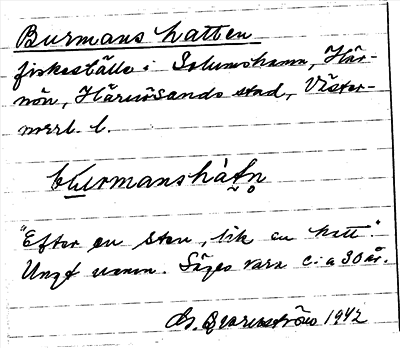 Burmanshatten
fiskeställe i Solumshamn, Här-
nön, Härnösands stad, Väster-
norrl. l.
burmanshàtn
"Efter en sten, lik en hatt"
Ungt namn. Säges vara c:a 30 år.
1942